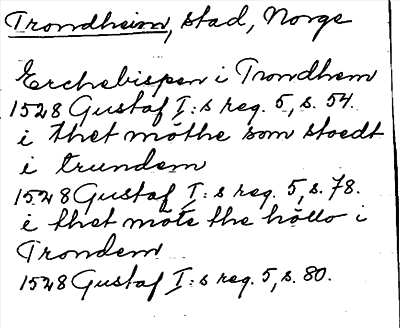 Trondheim, stad, Norge
Erchebispen i Trondhem
1528 Gustaf I:s reg. 5, s. 54.
i thet möthe som stoedt
i trundem
1528 Gustaf I:s reg. 5, s. 78.
i thet möte the höllo i
Trondem
1528 Gustaf I:s reg. 5, s. 80.